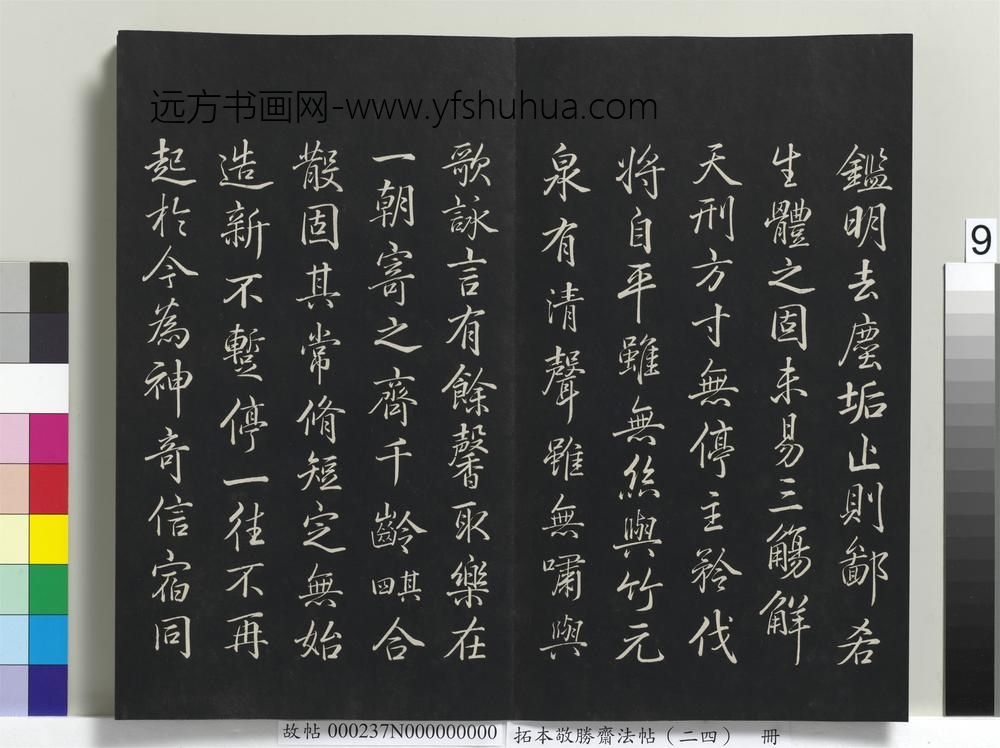 远方书画网-www.yfshuhua.com
鑑明去塵垢止則鄙𠫤
生體之固未易三觴解
天刑方寸無停主矜伐
將自平雖無絲與竹元
泉有清聲雖無嘯與
歌詠言有餘馨取樂在
一朝寄之齊千齡其四合
散固其常脩短定無始
造新不暫停一往不再
起於今為神奇信宿同
9
故帖 000237N000000000
拓本敬勝齋法帖(二四) 冊